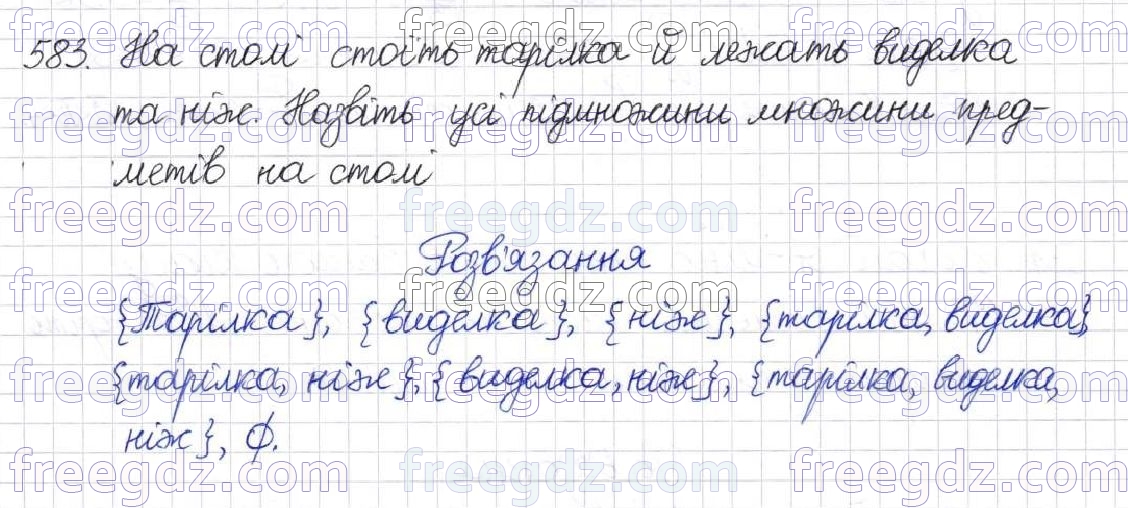 583. На столі стоїть тарілка й лежать виделка
та ніж. Назвіть усі підмножини множини пред-
метів на столі
Розв'язання
{Тарілка}, {виделка}, {ніж}, {тарілка, виделка},
{тарілка, ніж}, {виделка, ніж}, {тарілка, виделка,
ніж}, ∅.
freegdz.com